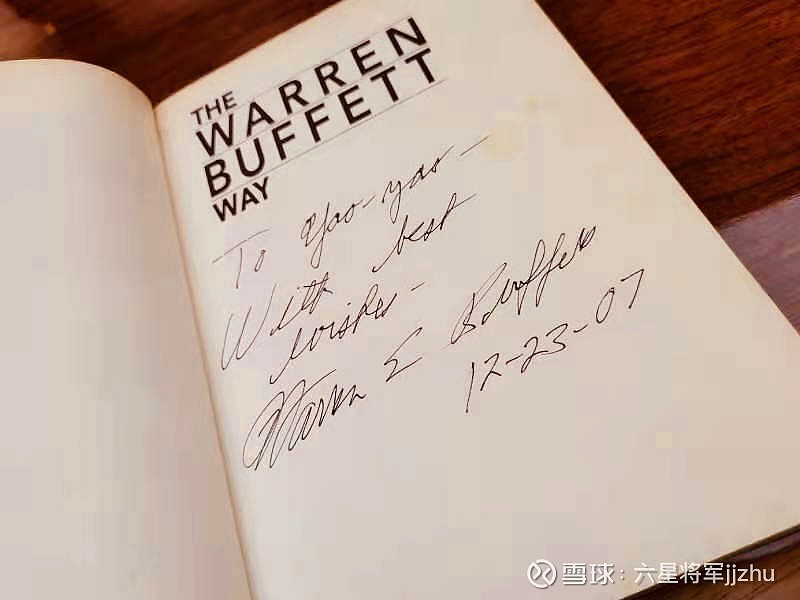 THE
WARREN
BUFFETT
WAY
To Yao-yao-
With best
wishes-
Warren E Buffett
12-23-07
雪球：六星将军jjzhu